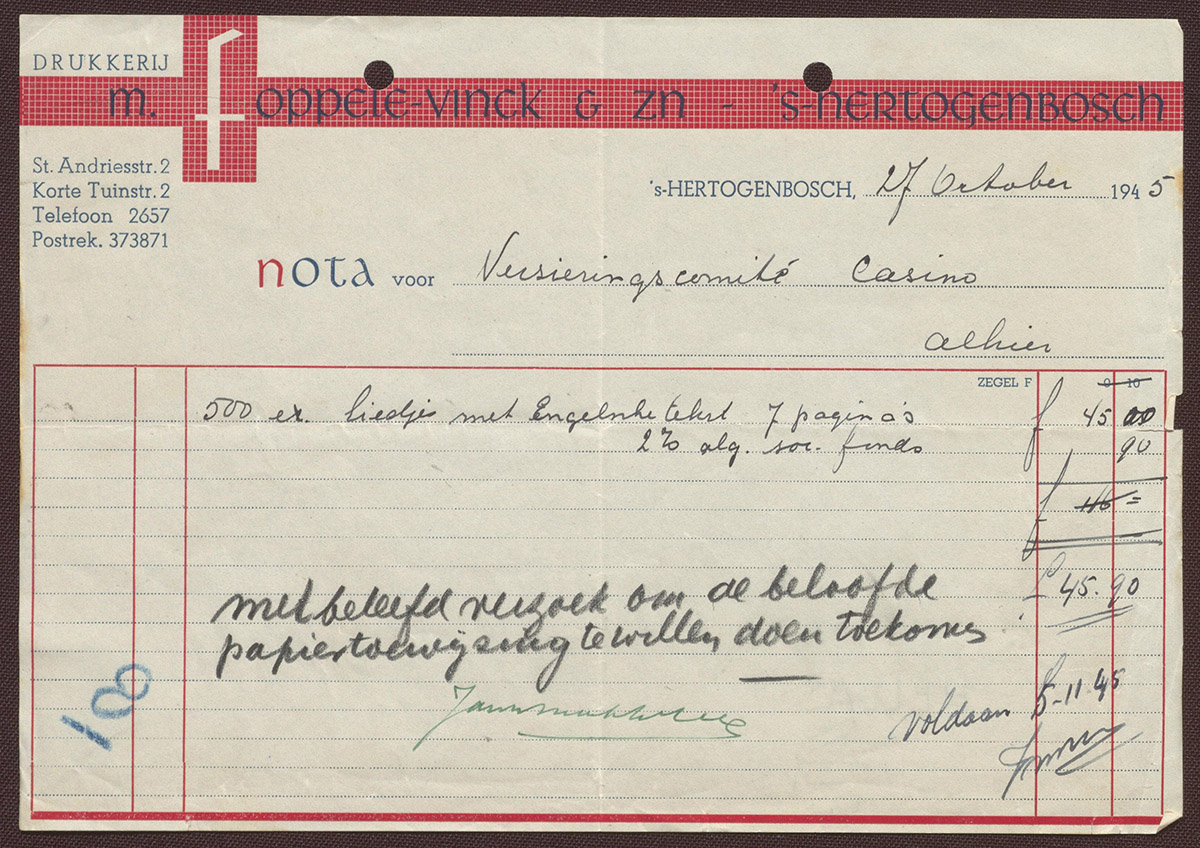 DRUKKERIJ
m. foppele-vinck & zn - 's-hertogenbosch
St. Andriesstr. 2
Korte Tuinstr. 2
Telefoon 2657
Postrek. 373871
's-HERTOGENBOSCH, 27 October 1945
nota voor Versieringscomité Casino
alhier
ZEGEL F 0 10
500 ex. liedjes met Engelsche tekst 7 pagina's f 45 00
2% alg. soc. fonds 90
f 46 =
f 45.90
met beleefd verzoek om de beloofde
papiertoewijsing te willen doen toekomen
100
voldaan 5-11-45